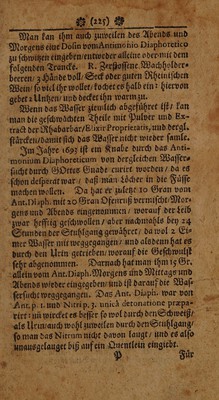 (225)
Man kan ihm auch zuweilen des Abends und
Morgens eine Dosin vom Antimonio Diaphoretico
zu schwitzen eingeben/ entweder alleine oder mit dem
folgenden Trancke. R. Zerstossene Wachholder-
beeren 3 Hände voll/ Sect oder guten Rheinischen
Wein/ so viel ihr wollet/ kochet es halb ein: hiervon
gebet 2 Untzen/ und decket ihn warm zu.
Wenn das Wasser ziemlich abgeführet ist/ kan
man die geschwächten Theile mit Pulver und Ex-
tract der Rhabarbar/Elixir Proprietatis, und dergl.
stärcken/ damit sich das Wasser nicht wieder samle.
Im Jahr 1695 ist ein Knabe durch das Anti-
monium Diaphoreticum von dergleichen Wasser-
sucht durch GOttes Gnade curirt worden/ da es
schon desperat war/ daß man Löcher in die Füsse
machen wollen. Da hat er zuletzt 20 Gran vom
Ant. Diaph. mit 20 Gran Ofenruß vermischt/ Mor-
gens und Abends eingenommen/ worauf der Leib
zwar hefftig geschwollen/ aber nachmahls bey 24
Stunden der Stuhlgang gewähret/ da wol 2 Ei-
mer Wasser mit weggegangen/ und alsdenn hat es
durch den Urin getrieben/ worauf die Geschwulst
sehr abgenommen. Darnach hat man ihm 15 Gr.
allein vom Ant. Diaph. Morgens und Mittags und
Abends wieder eingegeben/ und ist darauf die Was-
sersucht weggegangen. Das Ant. Diaph. war von
Ant. p. 1. und Nitri p. 3. unicâ detonatione præpa-
rirt/ und wircket es besser so wol durch den Schweiß/
als Urin/ auch wohl zuweilen durch den Stuhlgang/
so man das Nitrum nicht davon laugt/ und es also
unausgelauget biß auf ein Quentlein eingiebt.
P Für